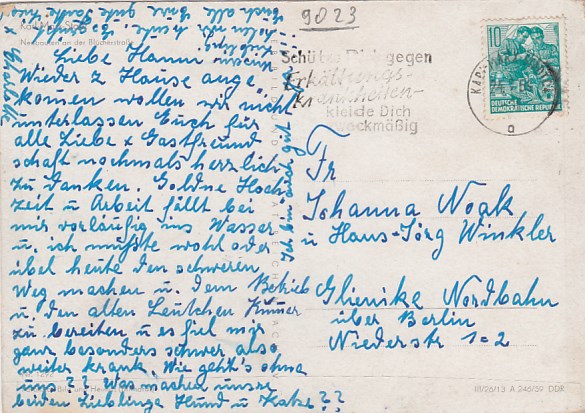 9023
Karl-Marx-Stadt
Neubauten an der Blücherstraße
Liebe Hanni
Wieder z Hause ange =
komen wollen wir nicht
unterlassen Euch für
alle Liebe & Gastfreund
schaft nochmals herzlich
zu danken. Goldne Hoch
zeit u Arbeit fällt bei
mir vorläufig ins Wasser
u. ich mußte wohl oder
übel heute den schweren
Weg machen u. dem Betrieb
u. den alten Leutchen Kumer
zu bereiten u es fiel mir
ganz besonders schwer also
weiter krank. Wie geht's ohne
uns?? Was machen unsre
beiden Lieblinge Hund u Katze??
Ich bin auch gut
Schütze Dich gegen
Erkältungs-
krankheiten-
kleide Dich
zweckmäßig
KARL-MARX-STADT
a
10
DEUTSCHE
DEMOKRATISCHE REPUBLIK
Fr
Johanna Noak
u Hans-Jörg Winkler
Glienike Nordbahn
über Berlin
Niederstr 1=2
III/26/13 A 246/59 DDR